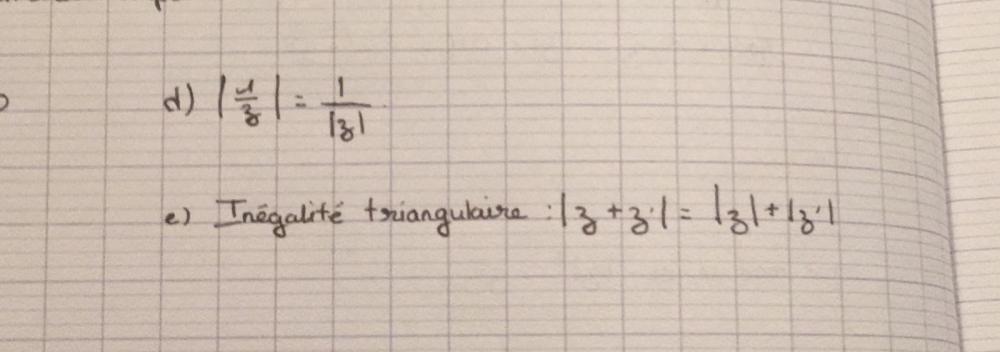 d) |1/z| = 1/|z|
e) Inégalité triangulaire : |z + z'| = |z| + |z'|